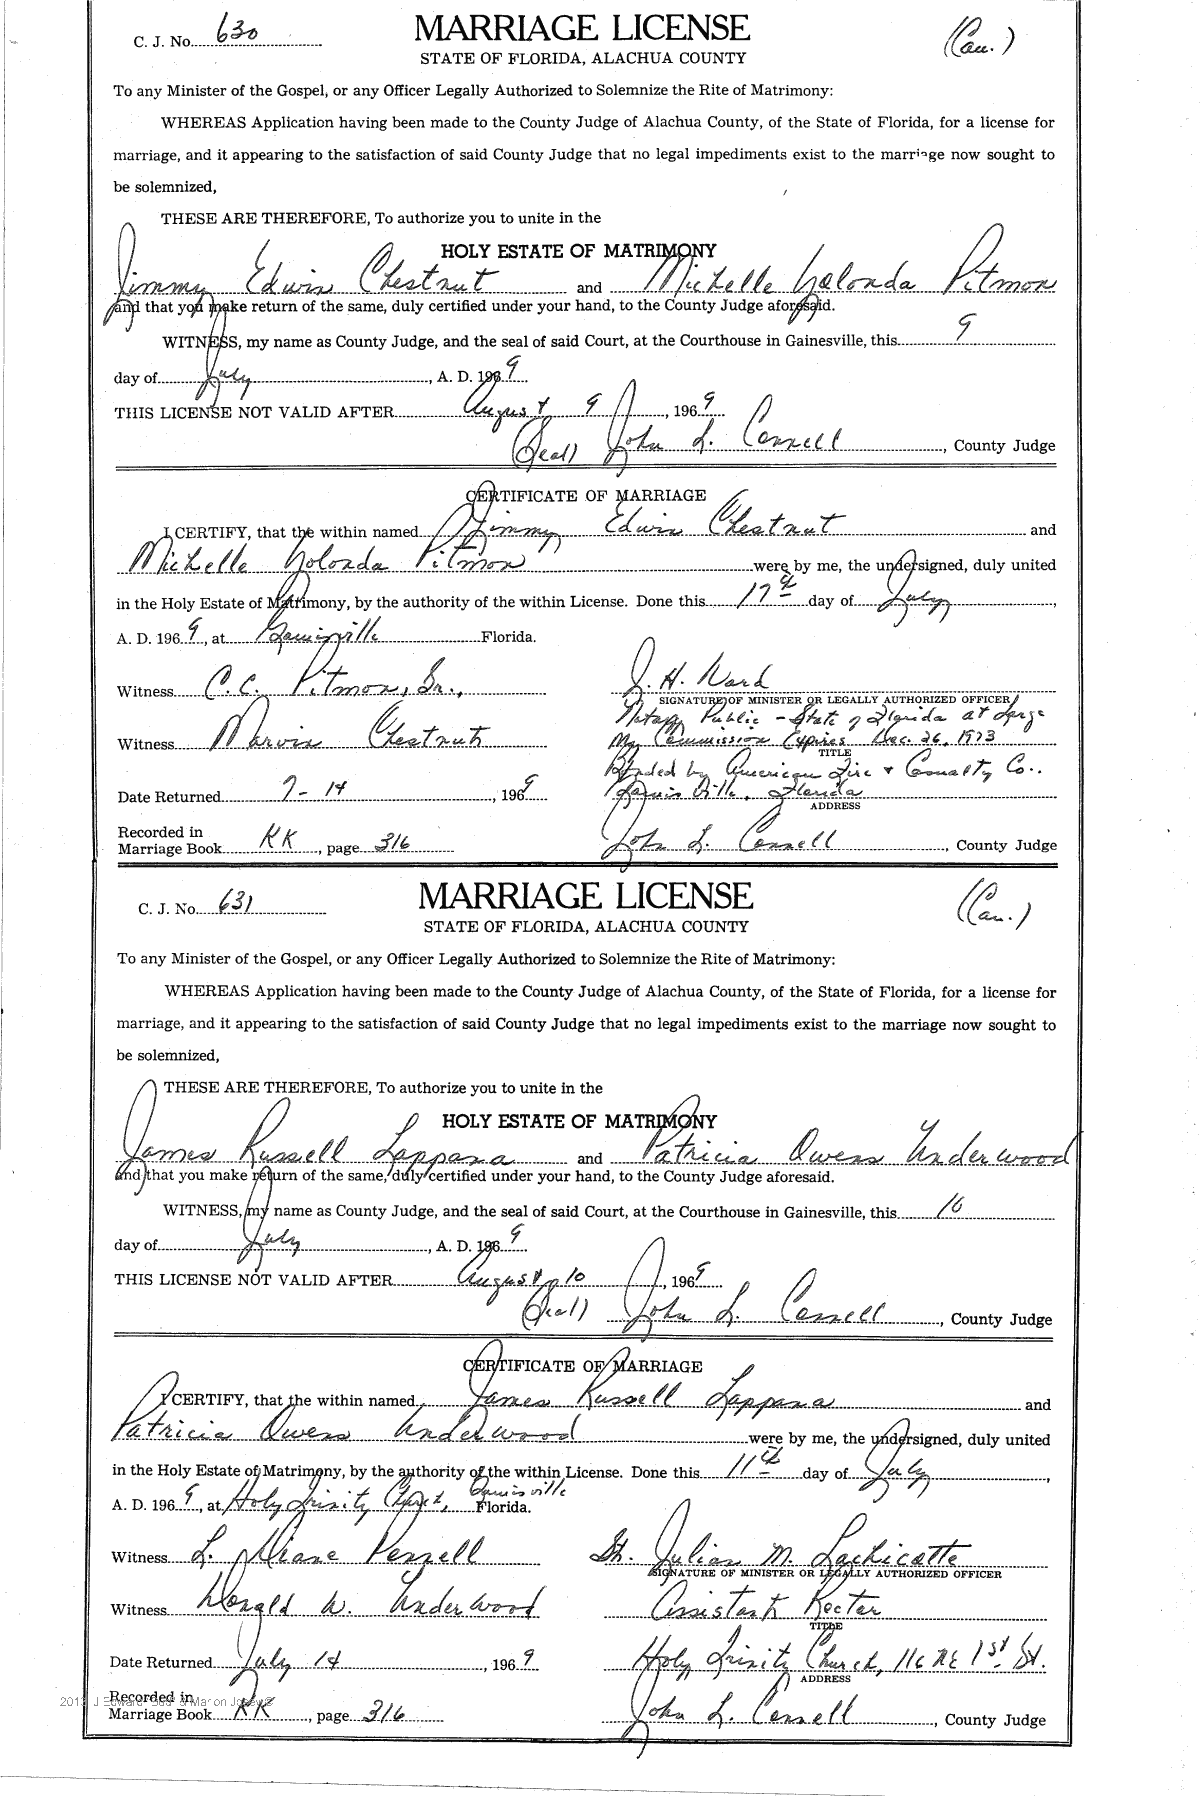 C. J. No. 630
MARRIAGE LICENSE
(Cau.)
STATE OF FLORIDA, ALACHUA COUNTY
To any Minister of the Gospel, or any Officer Legally Authorized to Solemnize the Rite of Matrimony:
WHEREAS Application having been made to the County Judge of Alachua County, of the State of Florida, for a license for
marriage, and it appearing to the satisfaction of said County Judge that no legal impediments exist to the marriage now sought to
be solemnized,
THESE ARE THEREFORE, To authorize you to unite in the
HOLY ESTATE OF MATRIMONY
Jimmy Edwin Chestnut and Michelle Yolonda Pitmon
and that you make return of the same, duly certified under your hand, to the County Judge aforesaid.
WITNESS, my name as County Judge, and the seal of said Court, at the Courthouse in Gainesville, this 9
day of July, A. D. 1969
THIS LICENSE NOT VALID AFTER August 9, 1969
(Seal) John L. Connell, County Judge
CERTIFICATE OF MARRIAGE
I CERTIFY, that the within named Jimmy Edwin Chestnut and
Michelle Yolonda Pitmon were by me, the undersigned, duly united
in the Holy Estate of Matrimony, by the authority of the within License. Done this 17th day of July,
A. D. 1969, at Gainesville Florida.
Witness C. C. Pitmon, Sr., J. H. Ward
SIGNATURE OF MINISTER OR LEGALLY AUTHORIZED OFFICER
Notary Public - State of Florida at Large
Witness Marvin Chestnut My Commission Expires Dec. 26, 1973
TITLE
Bonded by American Fire & Casualty Co..
Date Returned 7-14, 1969 Gainesville, Florida
ADDRESS
Recorded in
Marriage Book KK, page 316 John L. Connell, County Judge
C. J. No. 631
MARRIAGE LICENSE
(Cau.)
STATE OF FLORIDA, ALACHUA COUNTY
To any Minister of the Gospel, or any Officer Legally Authorized to Solemnize the Rite of Matrimony:
WHEREAS Application having been made to the County Judge of Alachua County, of the State of Florida, for a license for
marriage, and it appearing to the satisfaction of said County Judge that no legal impediments exist to the marriage now sought to
be solemnized,
THESE ARE THEREFORE, To authorize you to unite in the
HOLY ESTATE OF MATRIMONY
James Russell Lappana and Patricia Owens Underwood
and that you make return of the same, duly certified under your hand, to the County Judge aforesaid.
WITNESS, my name as County Judge, and the seal of said Court, at the Courthouse in Gainesville, this 10
day of July, A. D. 1969
THIS LICENSE NOT VALID AFTER August 10, 1969
(Seal) John L. Connell, County Judge
CERTIFICATE OF MARRIAGE
I CERTIFY, that the within named James Russell Lappana and
Patricia Owens Underwood were by me, the undersigned, duly united
in the Holy Estate of Matrimony, by the authority of the within License. Done this 11th day of July,
A. D. 1969, at Holy Trinity Church, Gainesville Florida.
Witness L. Diane Pennell Julian M. Lachicotte
SIGNATURE OF MINISTER OR LEGALLY AUTHORIZED OFFICER
Witness Donald W. Underwood Assistant Rector
TITLE
Date Returned July 14, 1969 Holy Trinity Church, 116 NE 1st St.
ADDRESS
Recorded in
Marriage Book KK, page 316 John L. Connell, County Judge